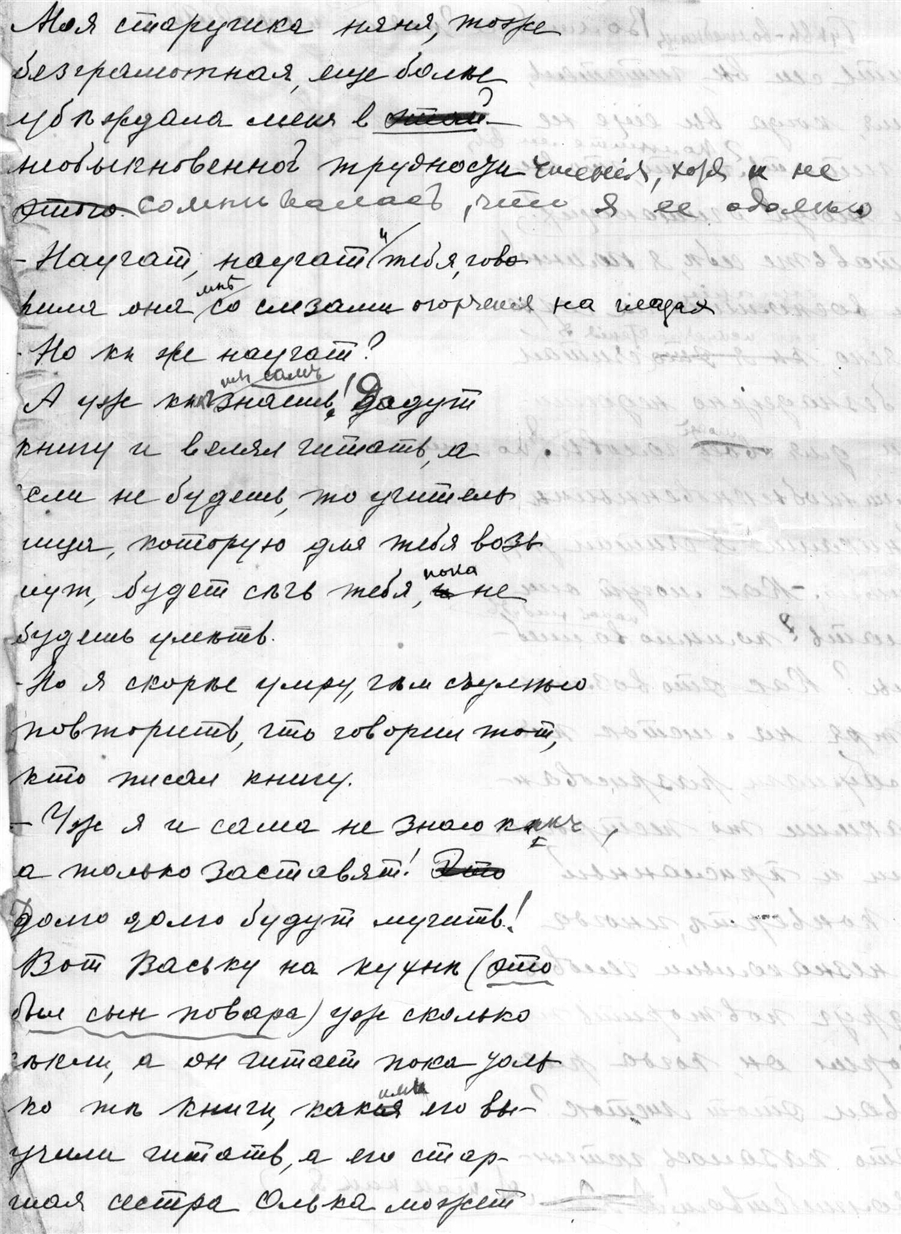 Моя старушка няня, тоже
безграмотная, еще болѣе
убѣждала меня в этой
необыкновенной трудности чтенія, хотя и не
этого сомнѣвалась, что я ее одолѣю
- Научат, научат и тебя, гово
рила она мнѣ со слезами огорченія на глазах
- Но кѣ же научат?
А уж кѣ знаешь ты самъ! Дадут
книгу и велят читать, а
если не будешь, то учитель
ница, которую для тебя возь
мут, будет сѣчь тебя, пока не
будешь умѣть.
- Но я скорѣе умру, чѣм съумѣю
повторить, что говорил тот,
кто писал книгу.
- Уж я и сама не знаю
а только заставят! Это
долго долго будут мучить!
Вот Ваську на кухнѣ (это
был сын повара) уж сколько
сѣкли, а он читает пока толь
ко тѣ книги, какія его вы-
учили читать, а его стар-
шая сестра Олька может